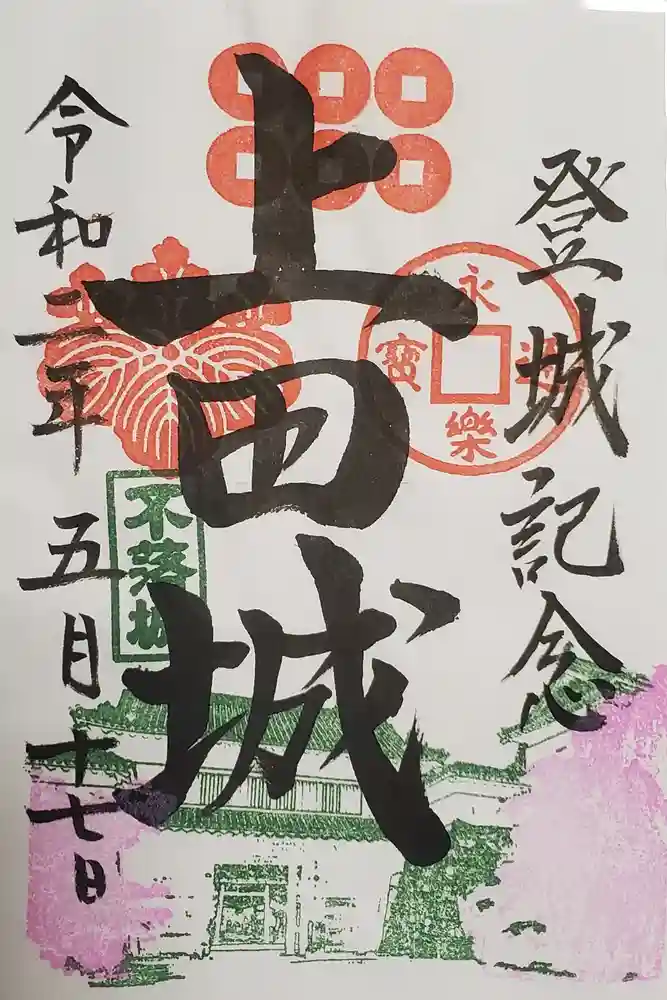 登城記念
上田城
令和三年五月十七日
永樂通寶
不落城